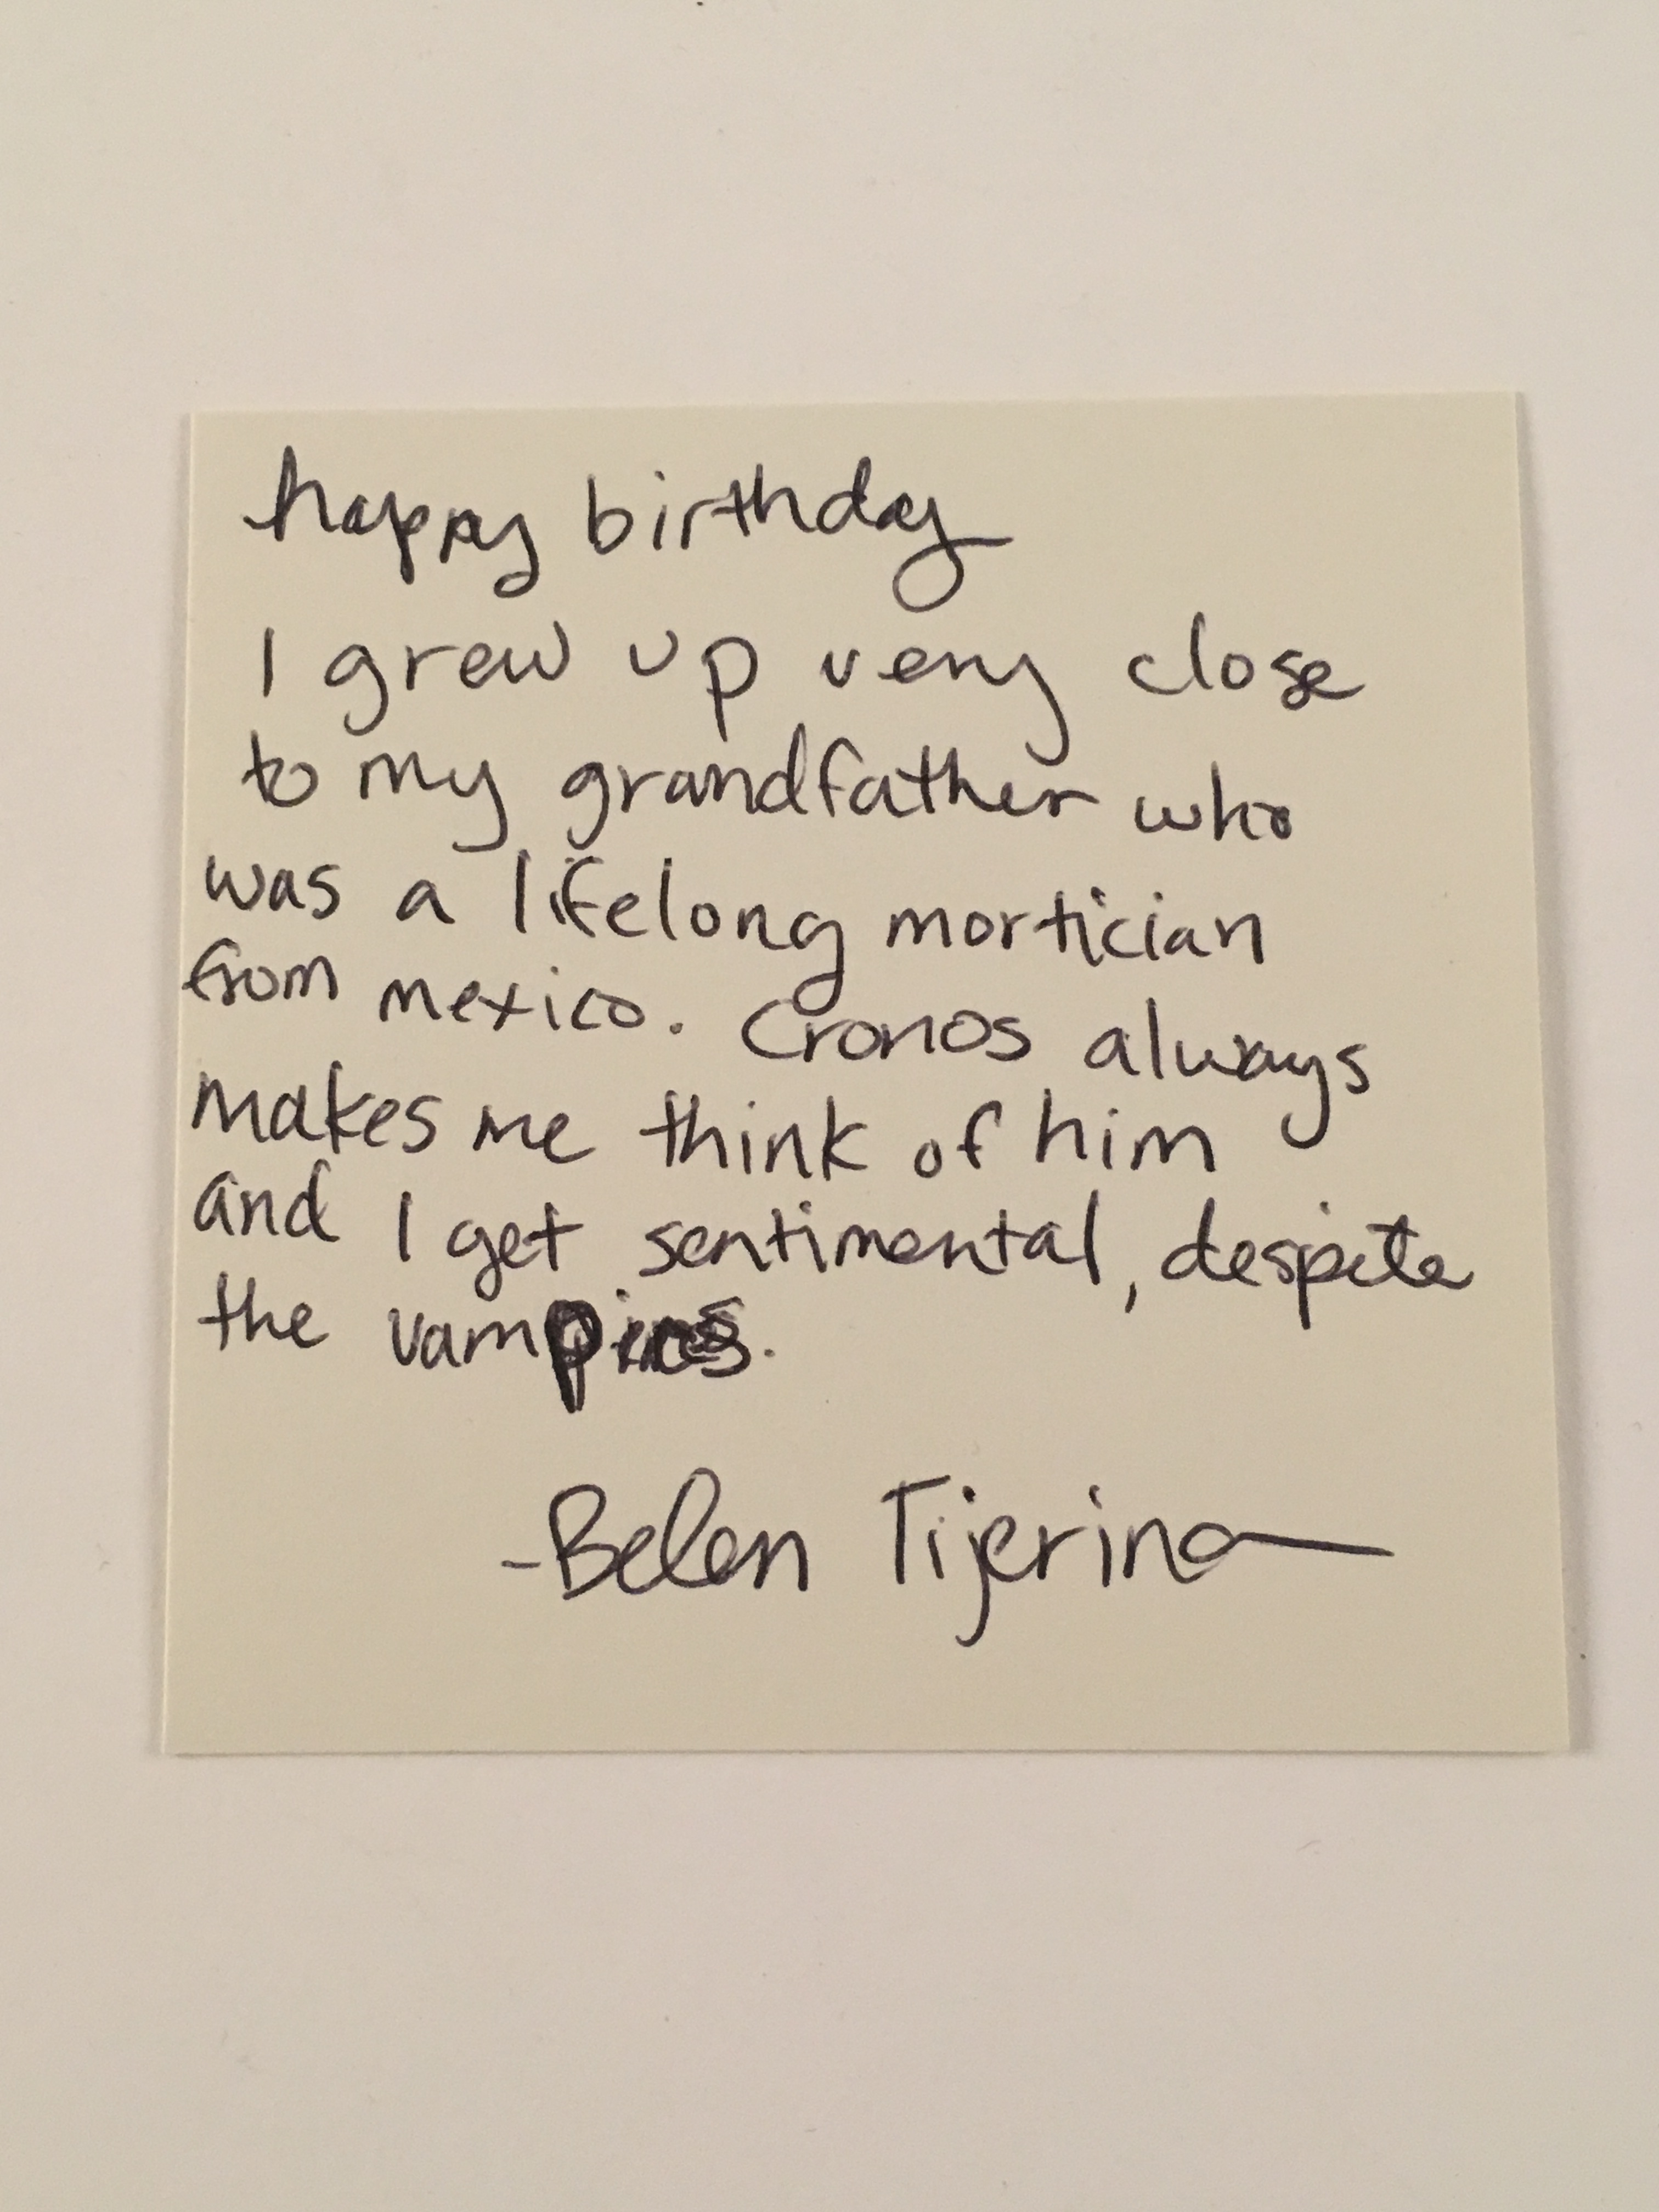 happy birthday
I grew up very close
to my grandfather who
was a lifelong mortician
from mexico. Cronos always
makes me think of him
and I get sentimental, despite
the vampires.
-Belen Tijerina